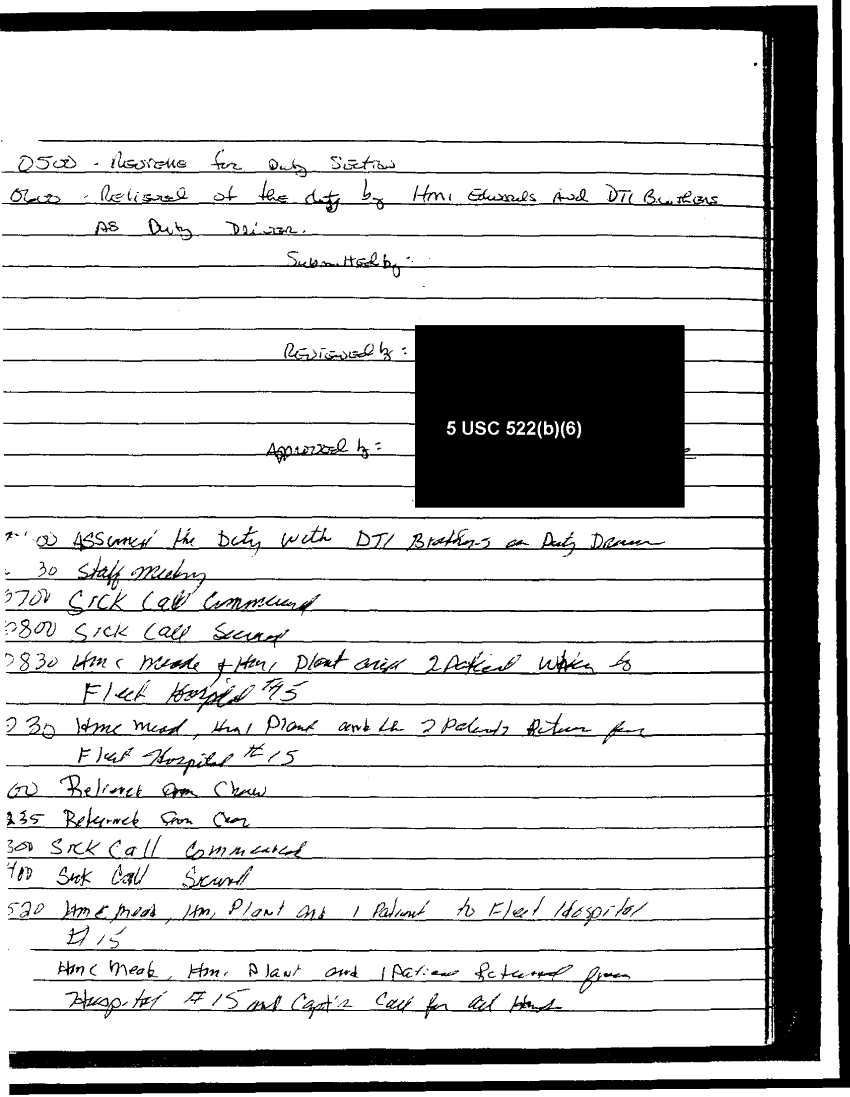 0500 - Reveille for Duty Section
0600 - Relieved of the duty by HM1 Edwards and DT1 Brothers
AS Duty Driver.
Submitted by:
Reviewed by:
5 USC 522(b)(6)
Approved by:
00 ASSumed the Duty with DT1 Brothers as Duty Driver
30 Staff Meeting
0700 Sick Call Commenced
0800 Sick Call Secured
0830 HMC Meade & HM1 Plant and 2 Patient to
Fleet Hospital #15
30 HMC Mead, HM1 Plant and the 2 Patients Return from
Fleet Hospital #15
00 Relieved for Chow
235 Returned from Chow
300 Sick Call Commenced
400 Sick Call Secured
520 HMC Mead, HM1 Plant and 1 Patient to Fleet Hospital
#15
HMC Meade, HM1 Plant and 1 Patient Returned from
Hospital #15 and Capt's Call for all Hands